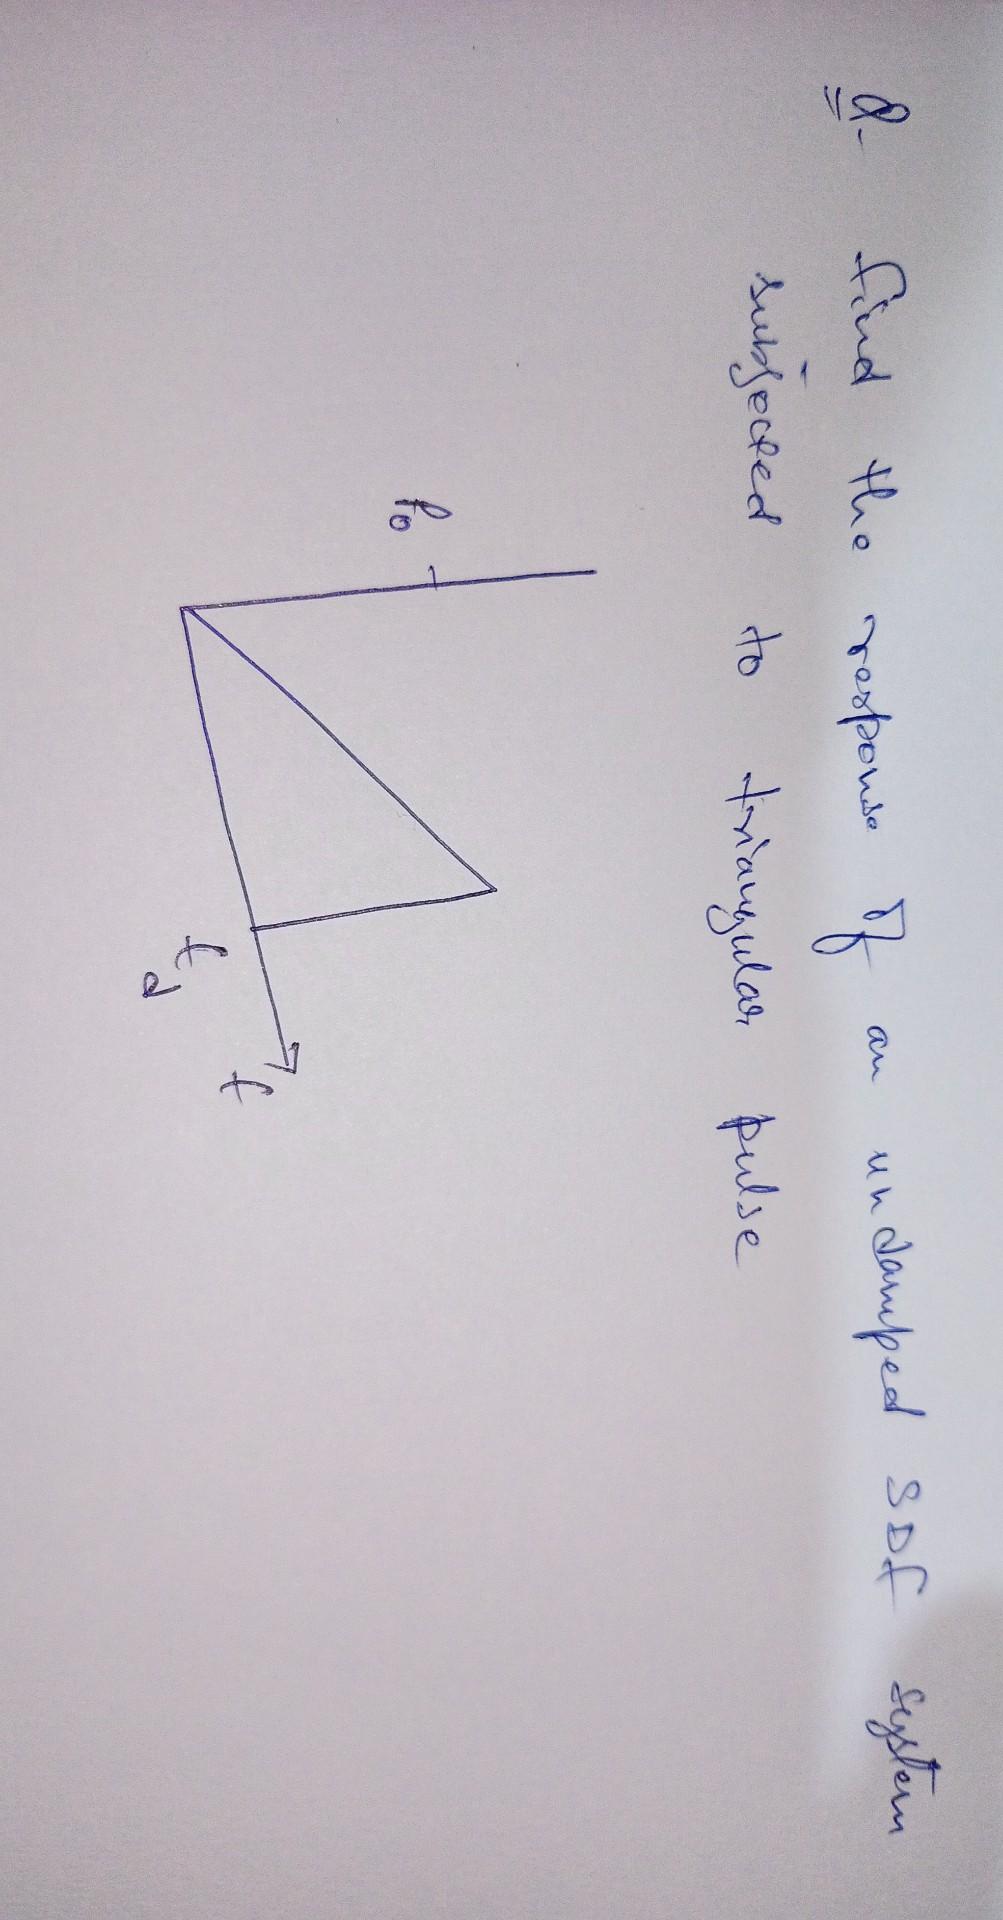 Q. find the response of an undamped SDF system
subjected to triangular pulse
p₀
t_d
t